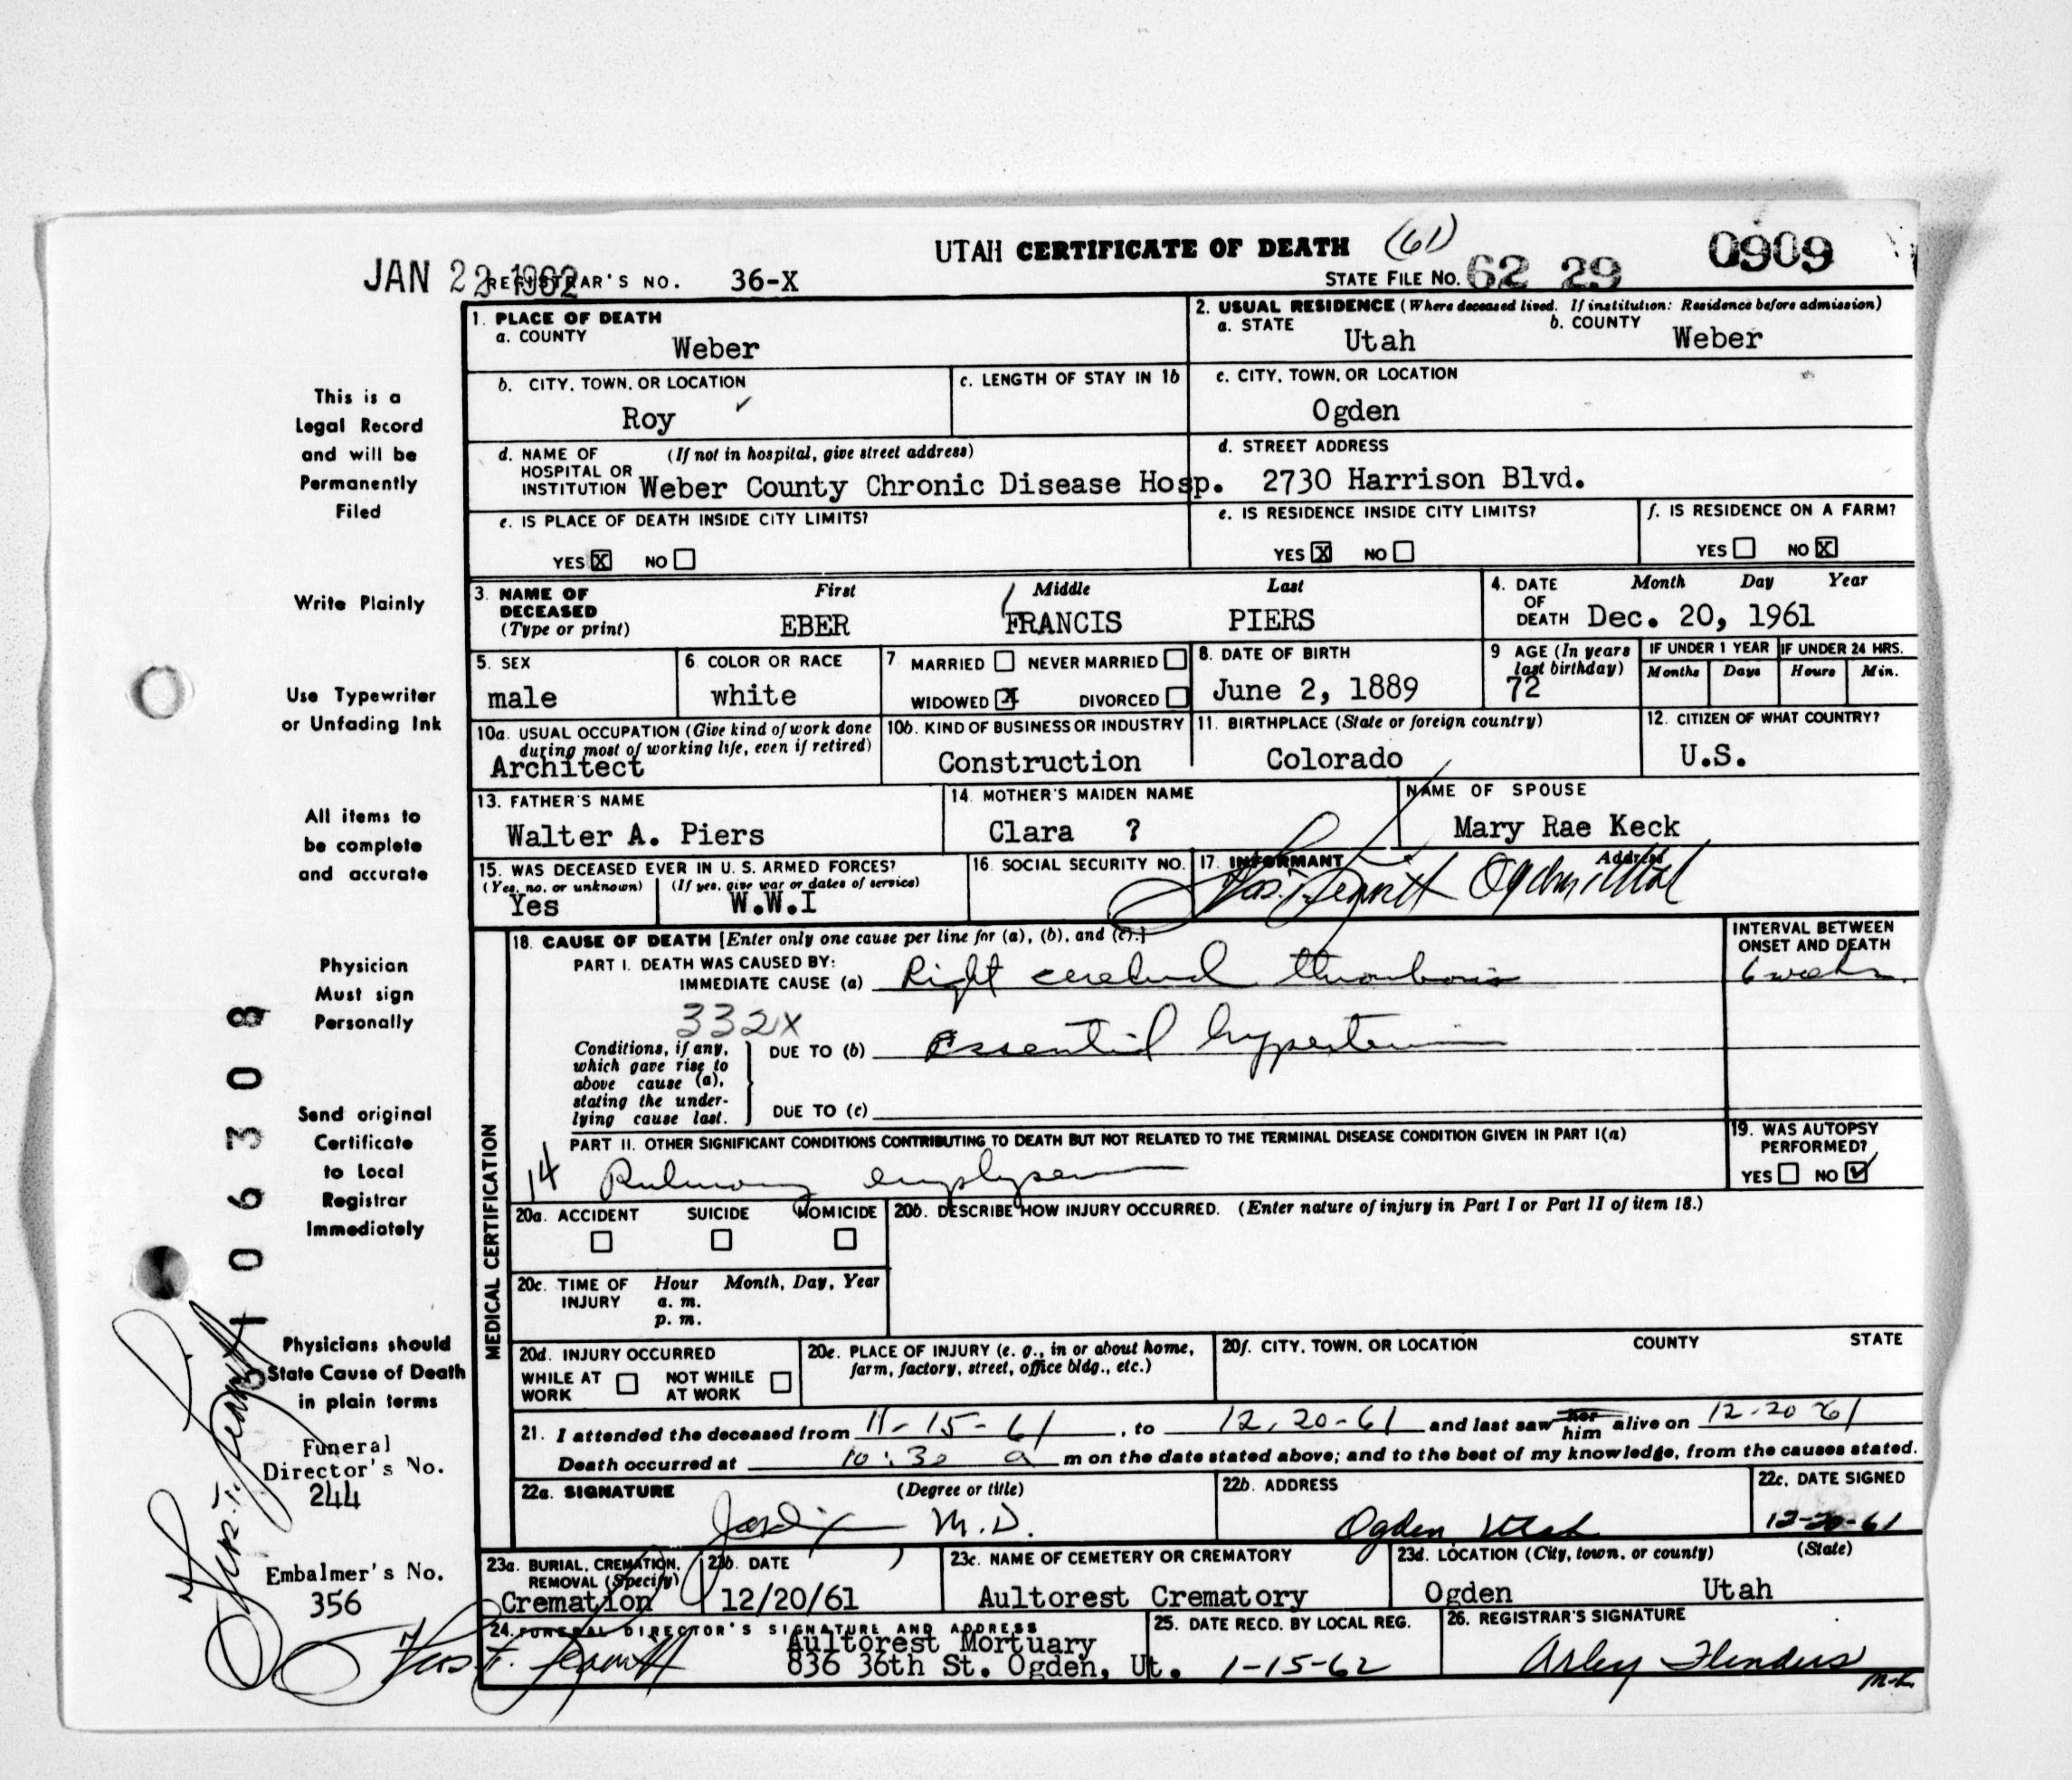 UTAH CERTIFICATE OF DEATH (61) 0909
JAN 22 1962 REGISTRAR'S NO. 36-X STATE FILE NO. 62 29
1. PLACE OF DEATH
a. COUNTY
Weber
2. USUAL RESIDENCE (Where deceased lived. If institution: Residence before admission)
a. STATE Utah b. COUNTY Weber
b. CITY, TOWN, OR LOCATION
Roy ✓
c. LENGTH OF STAY IN 1b
c. CITY, TOWN, OR LOCATION
Ogden
d. NAME OF (If not in hospital, give street address)
HOSPITAL OR
INSTITUTION Weber County Chronic Disease Hosp.
d. STREET ADDRESS
2730 Harrison Blvd.
e. IS PLACE OF DEATH INSIDE CITY LIMITS?
YES X NO
e. IS RESIDENCE INSIDE CITY LIMITS?
YES X NO
f. IS RESIDENCE ON A FARM?
YES NO X
3. NAME OF DECEASED (Type or print)
First Middle Last
EBER FRANCIS PIERS
4. DATE OF DEATH Month Day Year
Dec. 20, 1961
5. SEX
male
6. COLOR OR RACE
white
7 MARRIED NEVER MARRIED
WIDOWED X DIVORCED
8. DATE OF BIRTH
June 2, 1889
9 AGE (In years last birthday)
72
IF UNDER 1 YEAR IF UNDER 24 HRS.
Months Days Hours Min.
10a. USUAL OCCUPATION (Give kind of work done
during most of working life, even if retired)
Architect
10b. KIND OF BUSINESS OR INDUSTRY
Construction
11. BIRTHPLACE (State or foreign country)
Colorado
12. CITIZEN OF WHAT COUNTRY?
U.S.
13. FATHER'S NAME
Walter A. Piers
14. MOTHER'S MAIDEN NAME
Clara ?
NAME OF SPOUSE
Mary Rae Keck
15. WAS DECEASED EVER IN U. S. ARMED FORCES?
(Yes, no, or unknown) (If yes, give war or dates of service)
Yes W.W.I
16. SOCIAL SECURITY NO.
17. INFORMANT Address
Ogden, Utah
MEDICAL CERTIFICATION
18. CAUSE OF DEATH [Enter only one cause per line for (a), (b), and (c).]
PART I. DEATH WAS CAUSED BY:
IMMEDIATE CAUSE (a) Right cerebral thrombosis
INTERVAL BETWEEN
ONSET AND DEATH
6 weeks
332X
Conditions, if any,
which gave rise to
above cause (a),
stating the under-
lying cause last.
DUE TO (b) Essential hypertension
DUE TO (c)
PART II. OTHER SIGNIFICANT CONDITIONS CONTRIBUTING TO DEATH BUT NOT RELATED TO THE TERMINAL DISEASE CONDITION GIVEN IN PART I(a)
14 Pulmonary emphysema
19. WAS AUTOPSY
PERFORMED?
YES NO ✓
20a. ACCIDENT SUICIDE HOMICIDE
20b. DESCRIBE HOW INJURY OCCURRED. (Enter nature of injury in Part I or Part II of item 18.)
20c. TIME OF INJURY Hour Month, Day, Year
a. m.
p. m.
20d. INJURY OCCURRED
WHILE AT WORK NOT WHILE AT WORK
20e. PLACE OF INJURY (e. g., in or about home,
farm, factory, street, office bldg., etc.)
20f. CITY, TOWN, OR LOCATION COUNTY STATE
21. I attended the deceased from 11-15-61, to 12-20-61 and last saw her him alive on 12-20-61
Death occurred at 10:30 a m on the date stated above; and to the best of my knowledge, from the causes stated.
22a. SIGNATURE (Degree or title)
M.D.
22b. ADDRESS
Ogden Utah
22c. DATE SIGNED
12-20-61
23a. BURIAL, CREMATION,
REMOVAL (Specify)
Cremation
23b. DATE
12/20/61
23c. NAME OF CEMETERY OR CREMATORY
Aultorest Crematory
23d. LOCATION (City, town, or county) (State)
Ogden Utah
24. FUNERAL DIRECTOR'S SIGNATURE AND ADDRESS
Aultorest Mortuary
836 36th St. Ogden, Ut.
25. DATE RECD. BY LOCAL REG.
1-15-62
26. REGISTRAR'S SIGNATURE
Arley Flinders
This is a
Legal Record
and will be
Permanently
Filed
Write Plainly
Use Typewriter
or Unfading Ink
All items to
be complete
and accurate
Physician
Must sign
Personally
Send original
Certificate
to Local
Registrar
Immediately
Physicians should
State Cause of Death
in plain terms
Funeral
Director's No.
244
Embalmer's No.
356